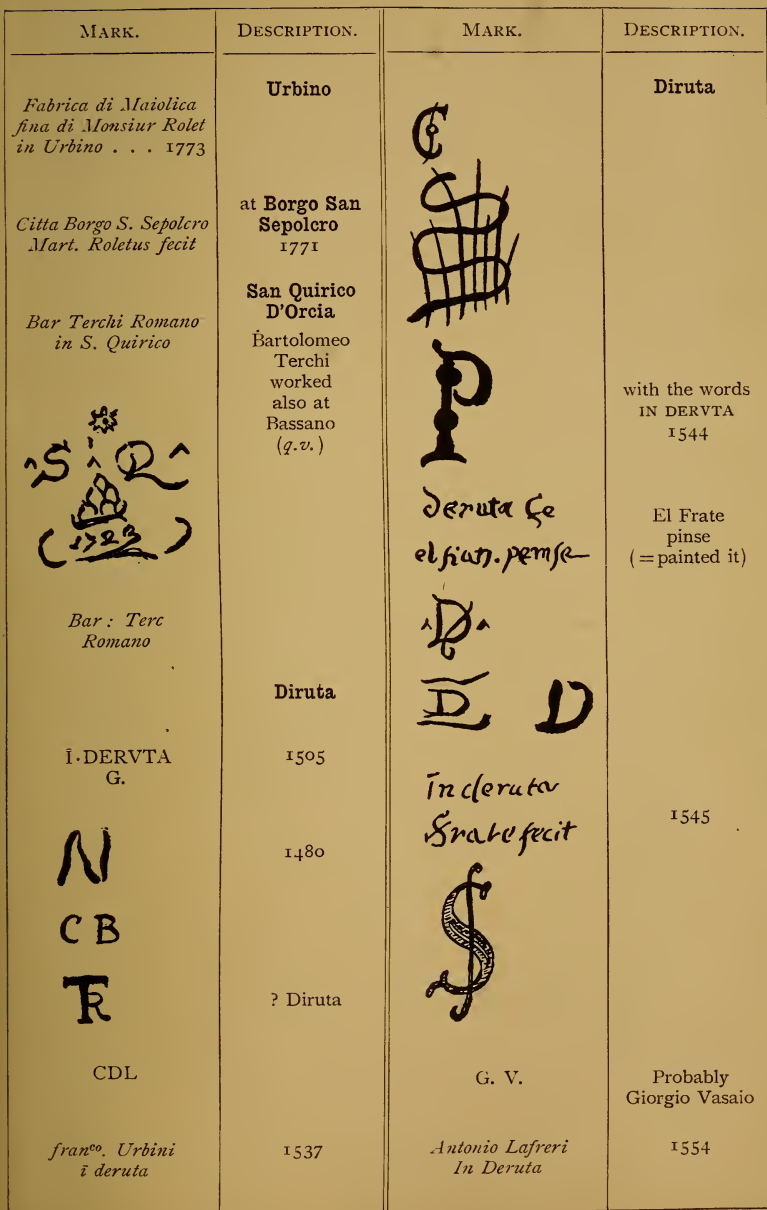 MARK.
DESCRIPTION.
Urbino
Fabrica di Maiolica
fina di Monsiur Rolet
in Urbino . . . 1773
Citta Borgo S. Sepolcro
Mart. Roletus fecit
at Borgo San
Sepolcro
1771
San Quirico
D'Orcia
Bar Terchi Romano
in S. Quirico
Bartolomeo
Terchi
worked
also at
Bassano
(q.v.)
S R
1723
Bar : Terc
Romano
Diruta
Ī·DERVTA
G.
1505
N
1480
C B
TR
? Diruta
CDL
franco. Urbini
ī deruta
1537
MARK.
DESCRIPTION.
Diruta
C
S
P
with the words
IN DERVTA
1544
deruta
El Frate
pinse
(=painted it)
D
D D
In deruta
frate fecit
1545
S
G. V.
Probably
Giorgio Vasaio
Antonio Lafreri
In Deruta
1554